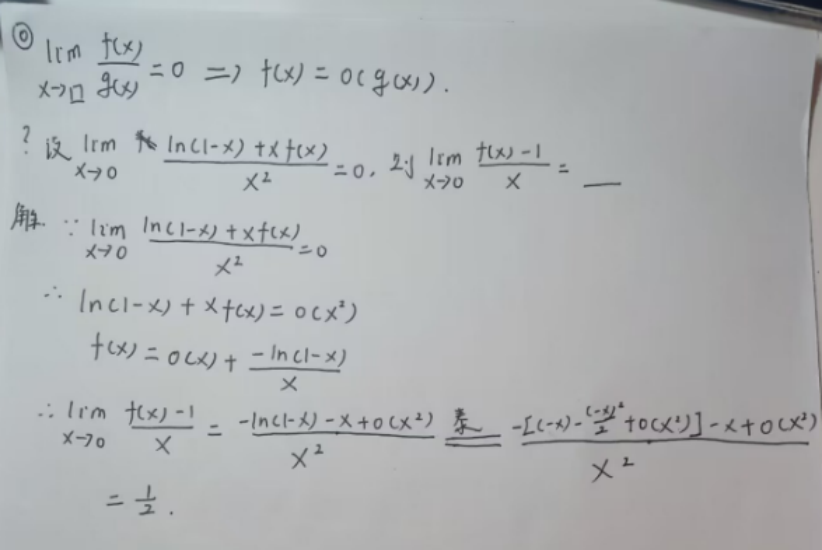 ⓪ lim x→□ f(x)/g(x) = 0 ⇒ f(x) = o(g(x)).
? 设 lim x→0 (ln(1-x)+xf(x))/x² = 0, 则 lim x→0 (f(x)-1)/x = __
解 ∵ lim x→0 (ln(1-x)+xf(x))/x² = 0
∴ ln(1-x)+xf(x) = o(x²)
f(x) = o(x) + (-ln(1-x))/x
∴ lim x→0 (f(x)-1)/x = (-ln(1-x)-x+o(x²))/x² 泰 (-[(-x)-(-x)²/2+o(x²)]-x+o(x²))/x²
= 1/2.